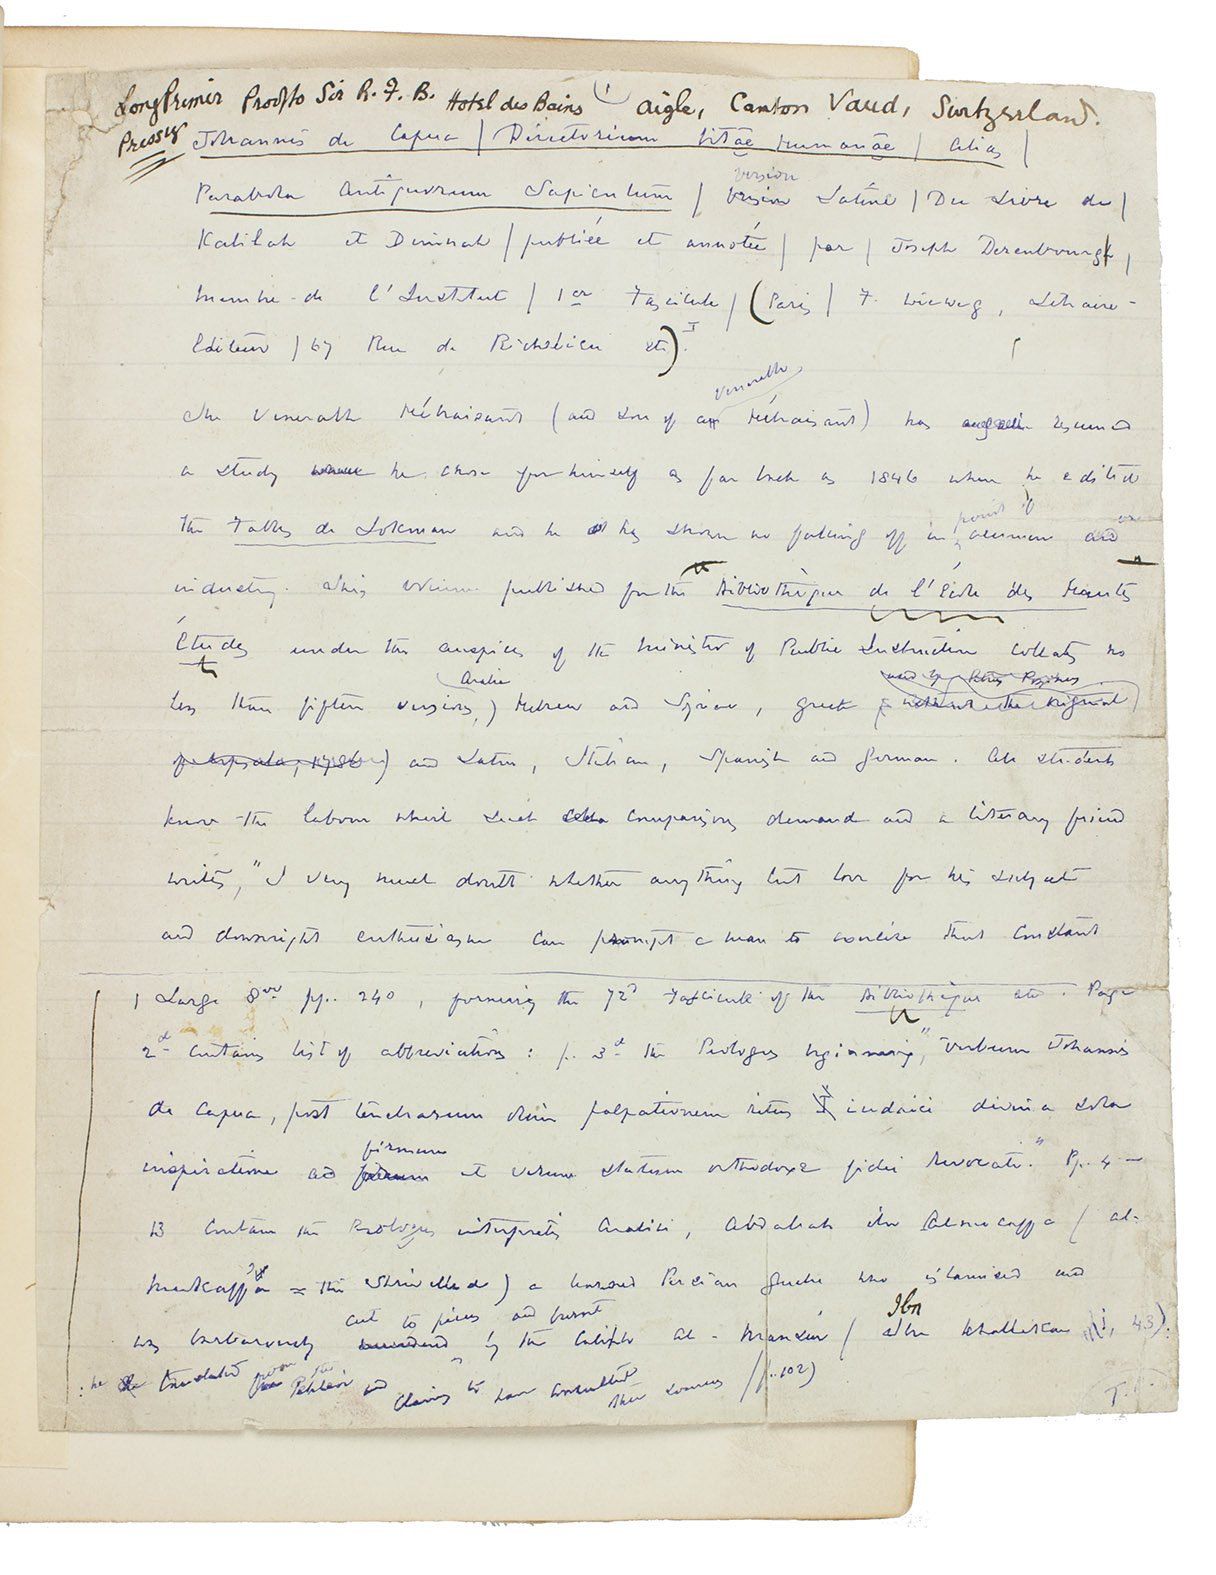 Long Primer Proof to Sir R. F. B. Hotel des Bains 1 Aigle, Canton Vaud, Switzerland.
Press
Johannis de Capua / Directorium Vitae Humanae / alias /
version
Parabola Antiquorum Sapientum / Version Latine / Du Livre de /
Kalilah et Dimnah / publiée et annotée / par / Joseph Derenbourg /
Membre de l'Institut / 1er Fascicule / (Paris / F. Vieweg, Libraire-
Editeur / 67 Rue de Richelieu etc) 1
venerable
The Venerable Hébraisant (and son of a Hébraisant) has again resumed
a study he chose for himself as far back as 1846 when he edited
point of
or
the Fables de Lokman and he has shown no falling off in acumen and
industry. This volume published for the Bibliothèque de l'École des Hautes
Études under the auspices of the Minister of Public Instruction collates no
Arabic
less than fifteen versions, Hebrew and Syriac, Greek (without the original
of Upsala, 1786) and Latin, Italian, Spanish and German. All students
know the labour which such comparisons demand and a literary friend
writes, "I very much doubt whether anything but love for his subject
and downright enthusiasm can prompt a man to exercise that constant
1 Large 8vo pp. 240, forming the 72d Fascicule of the Bibliothèque etc. Page
2d contains list of abbreviations: p. 3d the Prologus beginning, "Verbum Johannis
de Capua, post tenebrarum olim palpationem ritus iudaici divina sola
firmum
inspiratione ad et verum statum orthodoxe fidei revocati." Pp. 4–
13 contain the Prologus interpretis Arabici, Abdallah ibn Almocaffa (al-
Mukaffa = the shrivelled) a learned Persian Guebre who islamised and
cut to pieces and burnt
Ibn
was barbarously murdered by the Caliph Al-Mansur (Khallikan i, 43):
: he translated from the Pehlevi and claims to have consulted
their sources (p. 102)